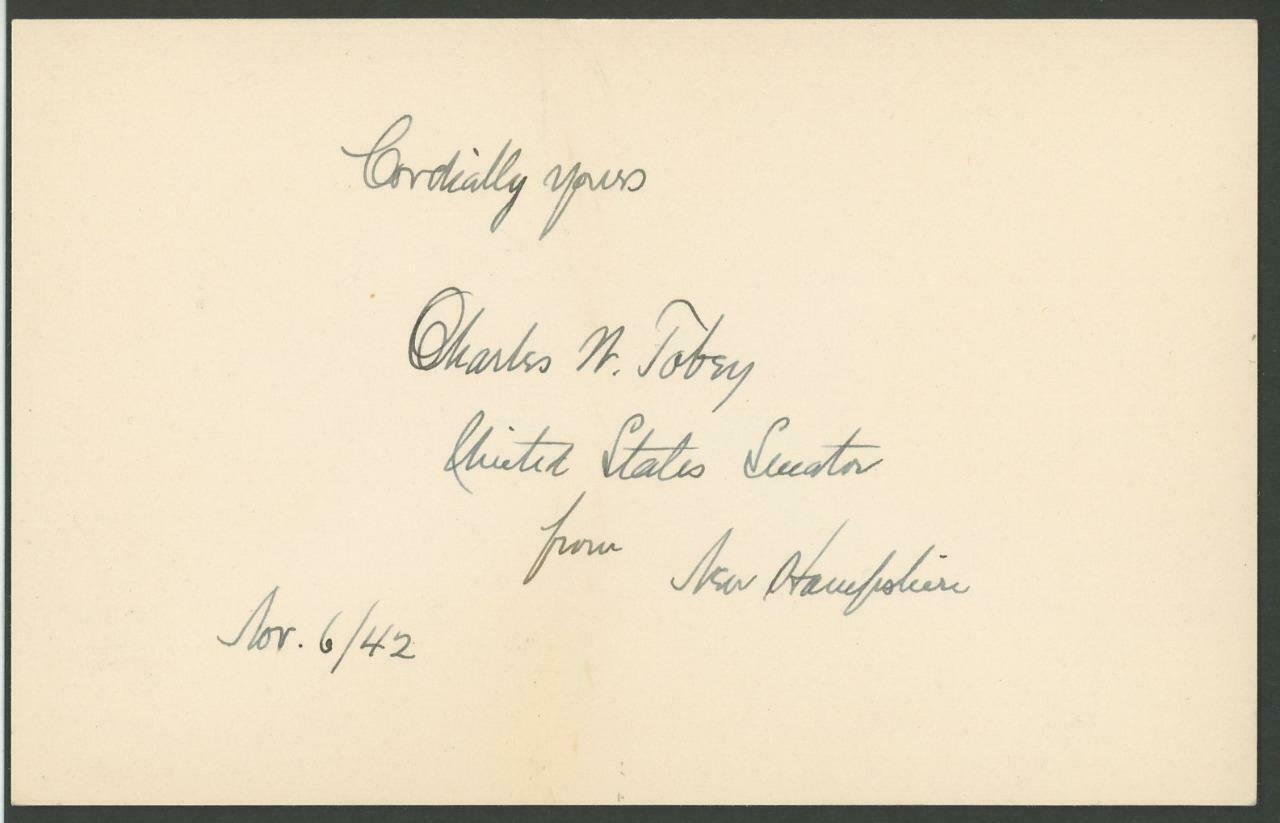 Cordially yours
Charles W. Tobey
United States Senator
from
New Hampshire
Nov. 6/42